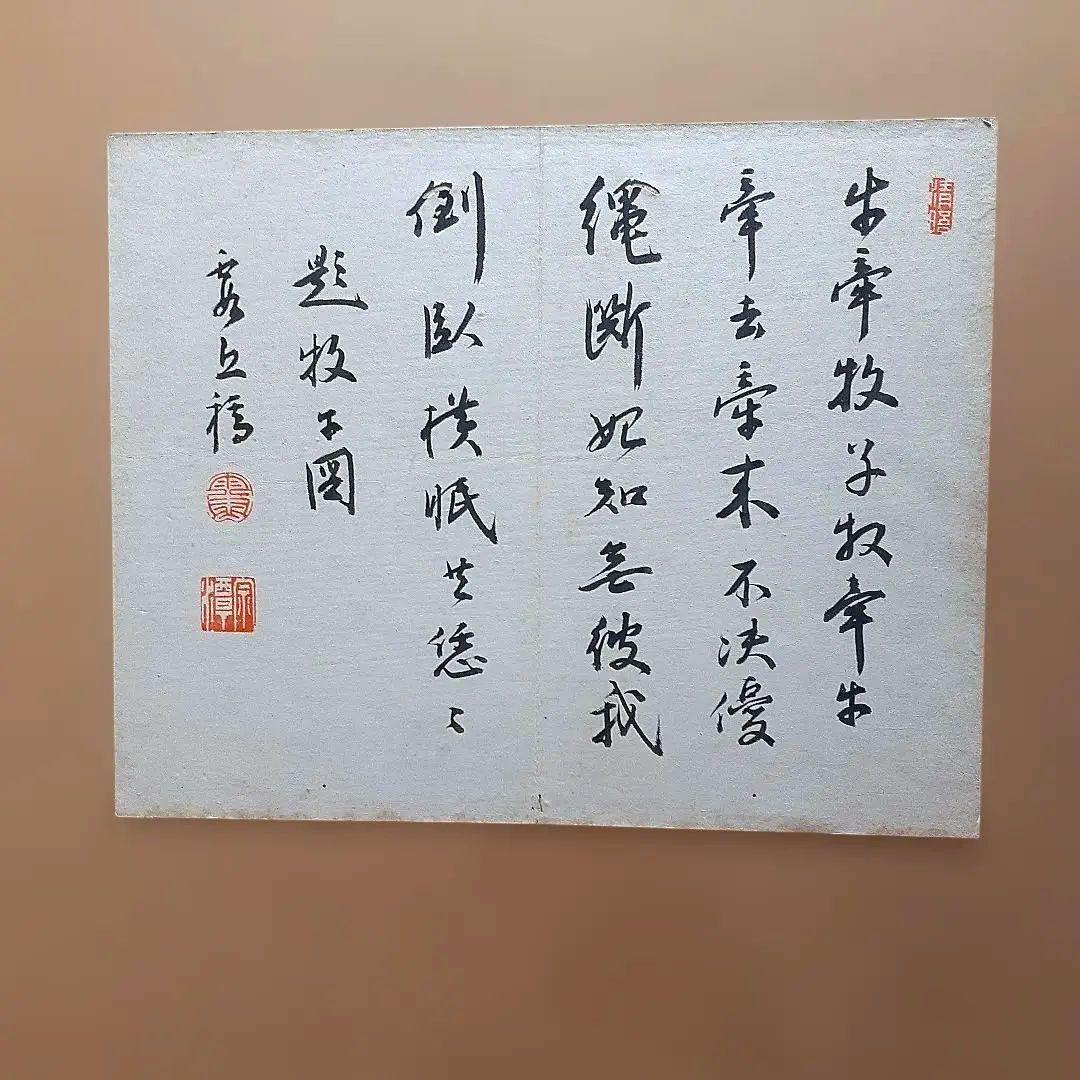 牛牽牧子牧牽牛
牽去牽来不決優
繩断始知無彼我
倒臥横眠共恁々
題牧牛圖
宗潭